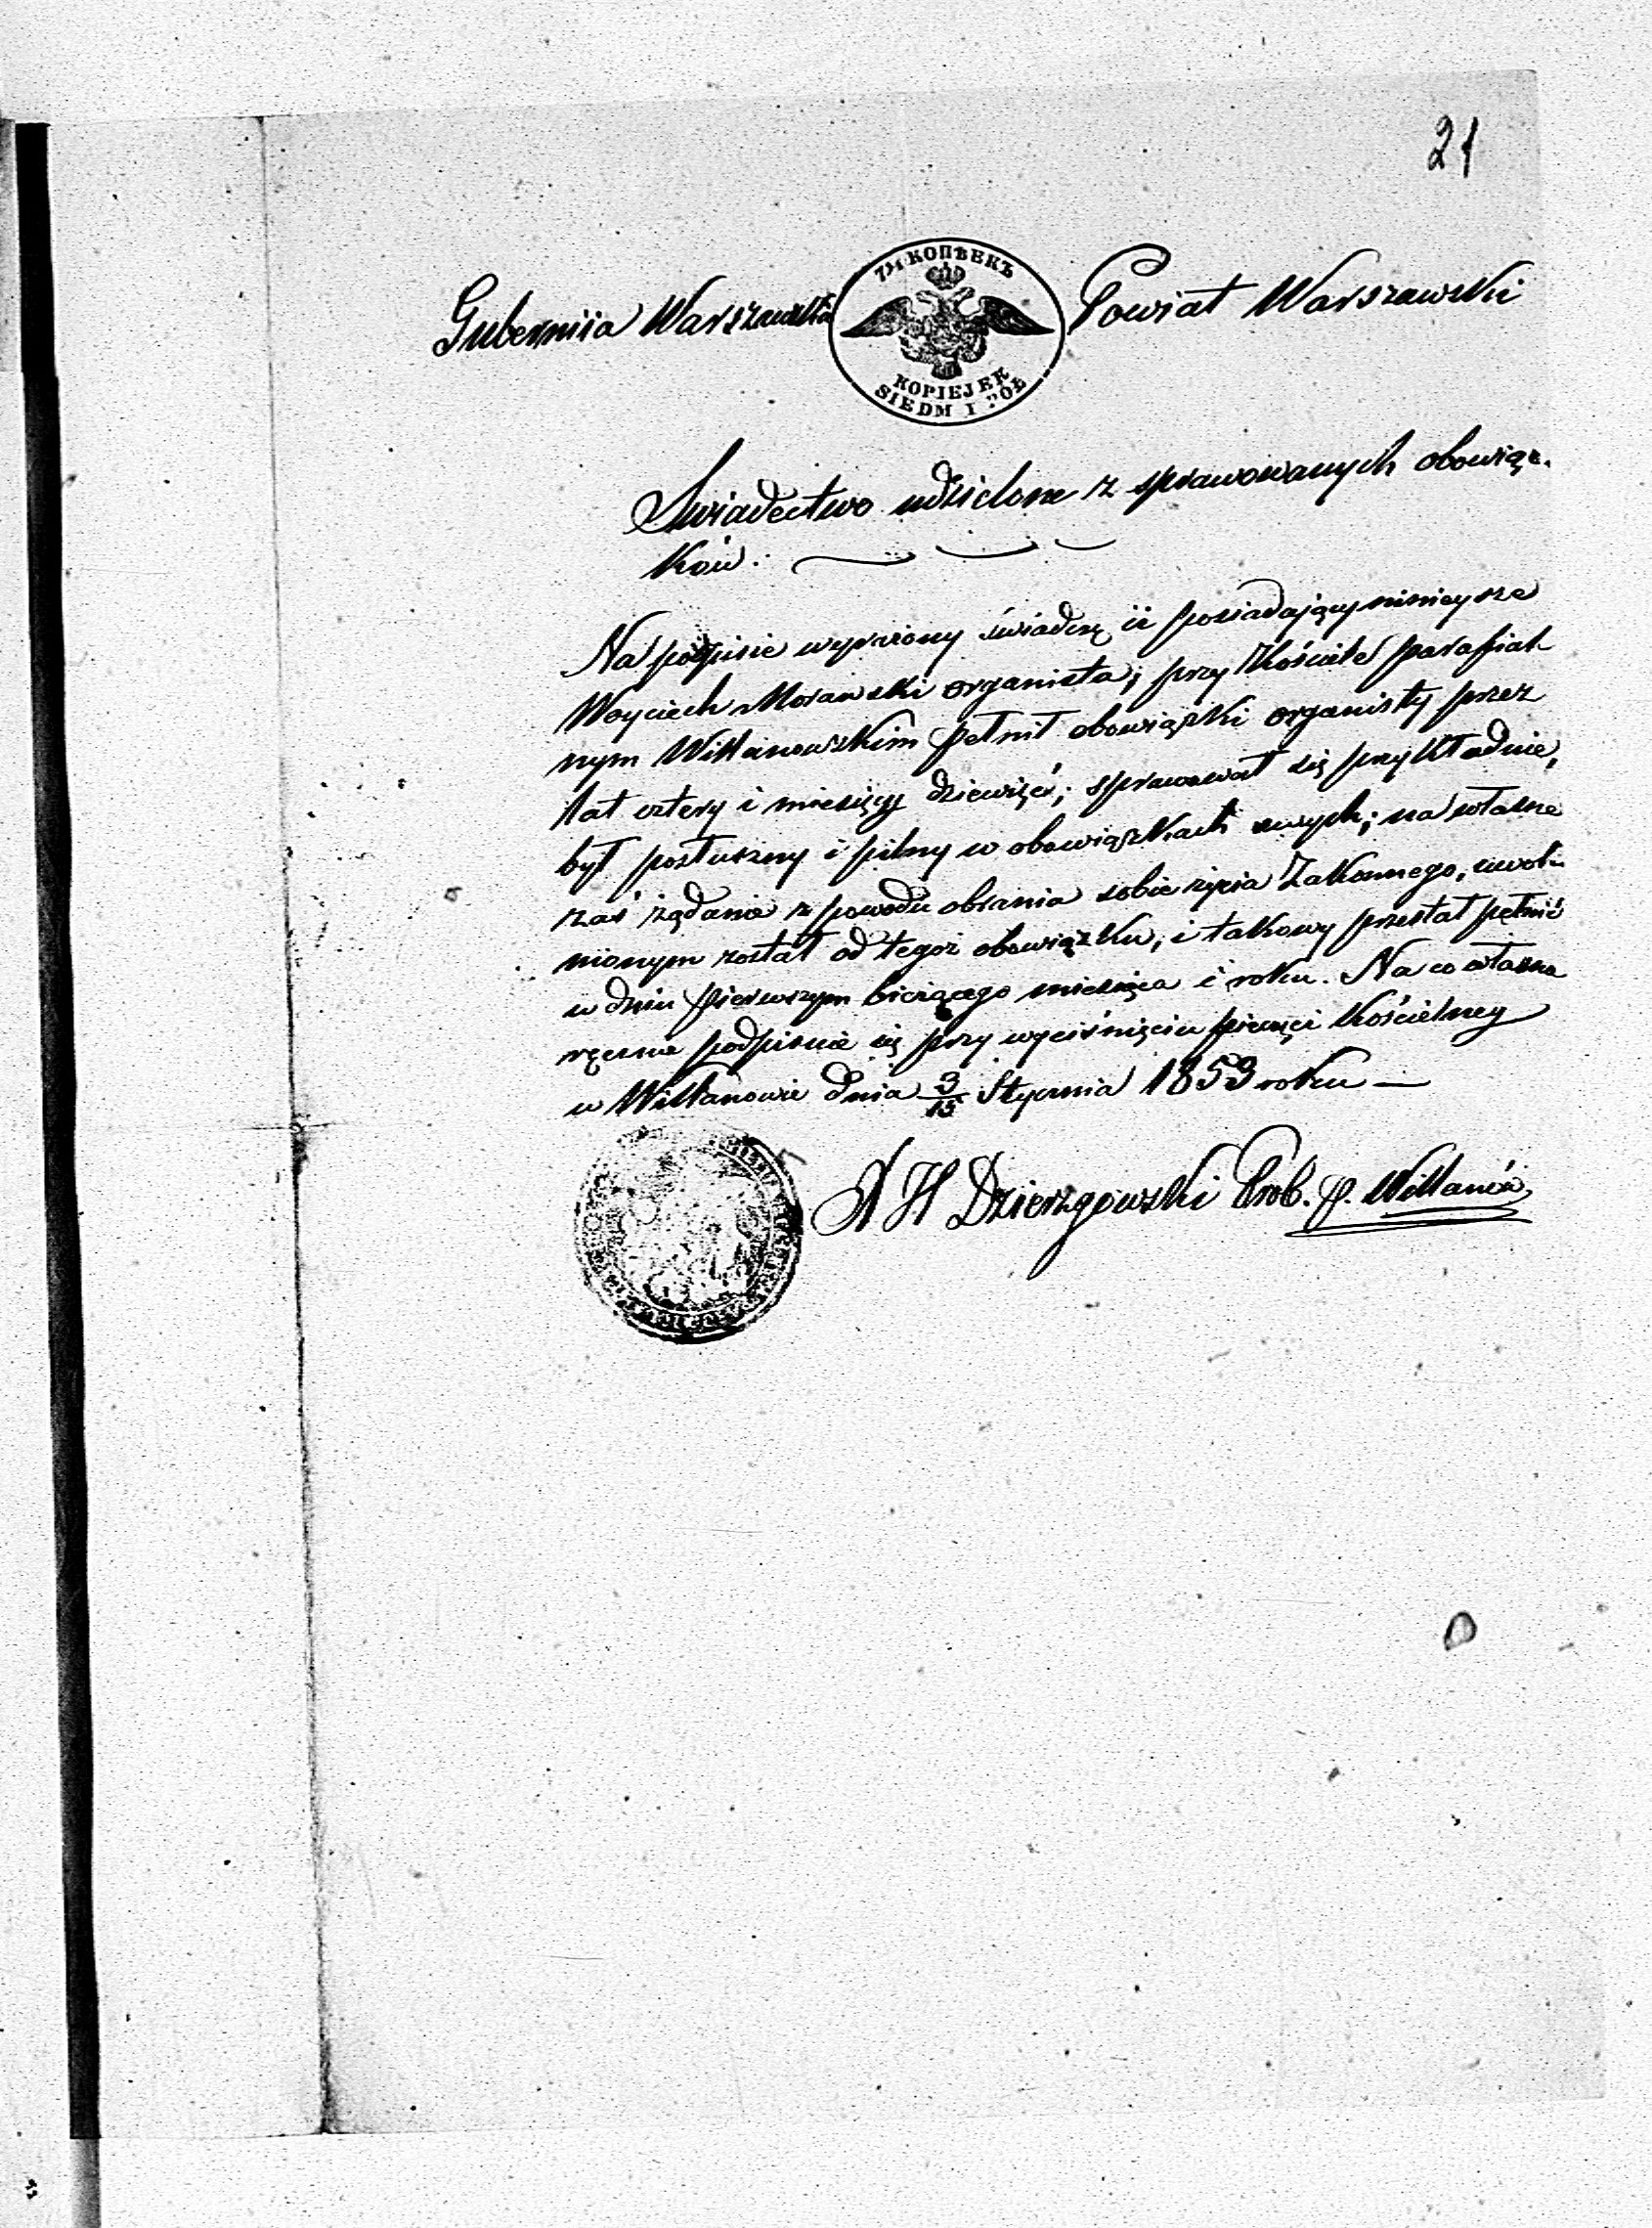 21
Guberniia Warszawska
7½ КОПѢЕКЪ
KOPIEJEK
SIEDM I PÓŁ
Powiat Warszawski
Swiadectwo udzielone z sprawowanych obowiąz-
ków.
Na podpisie wyrażony świadczę iż posiadający ninieysze
Woyciech Morawski organista; przy Kościele parafial-
nym Willanowskim pełnił obowiązki organisty przez
lat cztery i miesięcy dziewięć; sprawował się przykładnie,
był posłuszny i pilny w obowiązkach swych; na własne
zaś żądanie z powodu obrania sobie życia Zakonnego, uwol-
nionym został od tegoż obowiązku, i takowy przestał pełnić
w dniu pierwszym bieżącego miesiąca i roku. Na co własno
ręcznie podpisuie się przy wyciśnięciu pieczęci kościelney
w Willanowie dnia 3/15 Stycznia 1853 roku —
X H Dzierzgowski Prob. p. Willanów